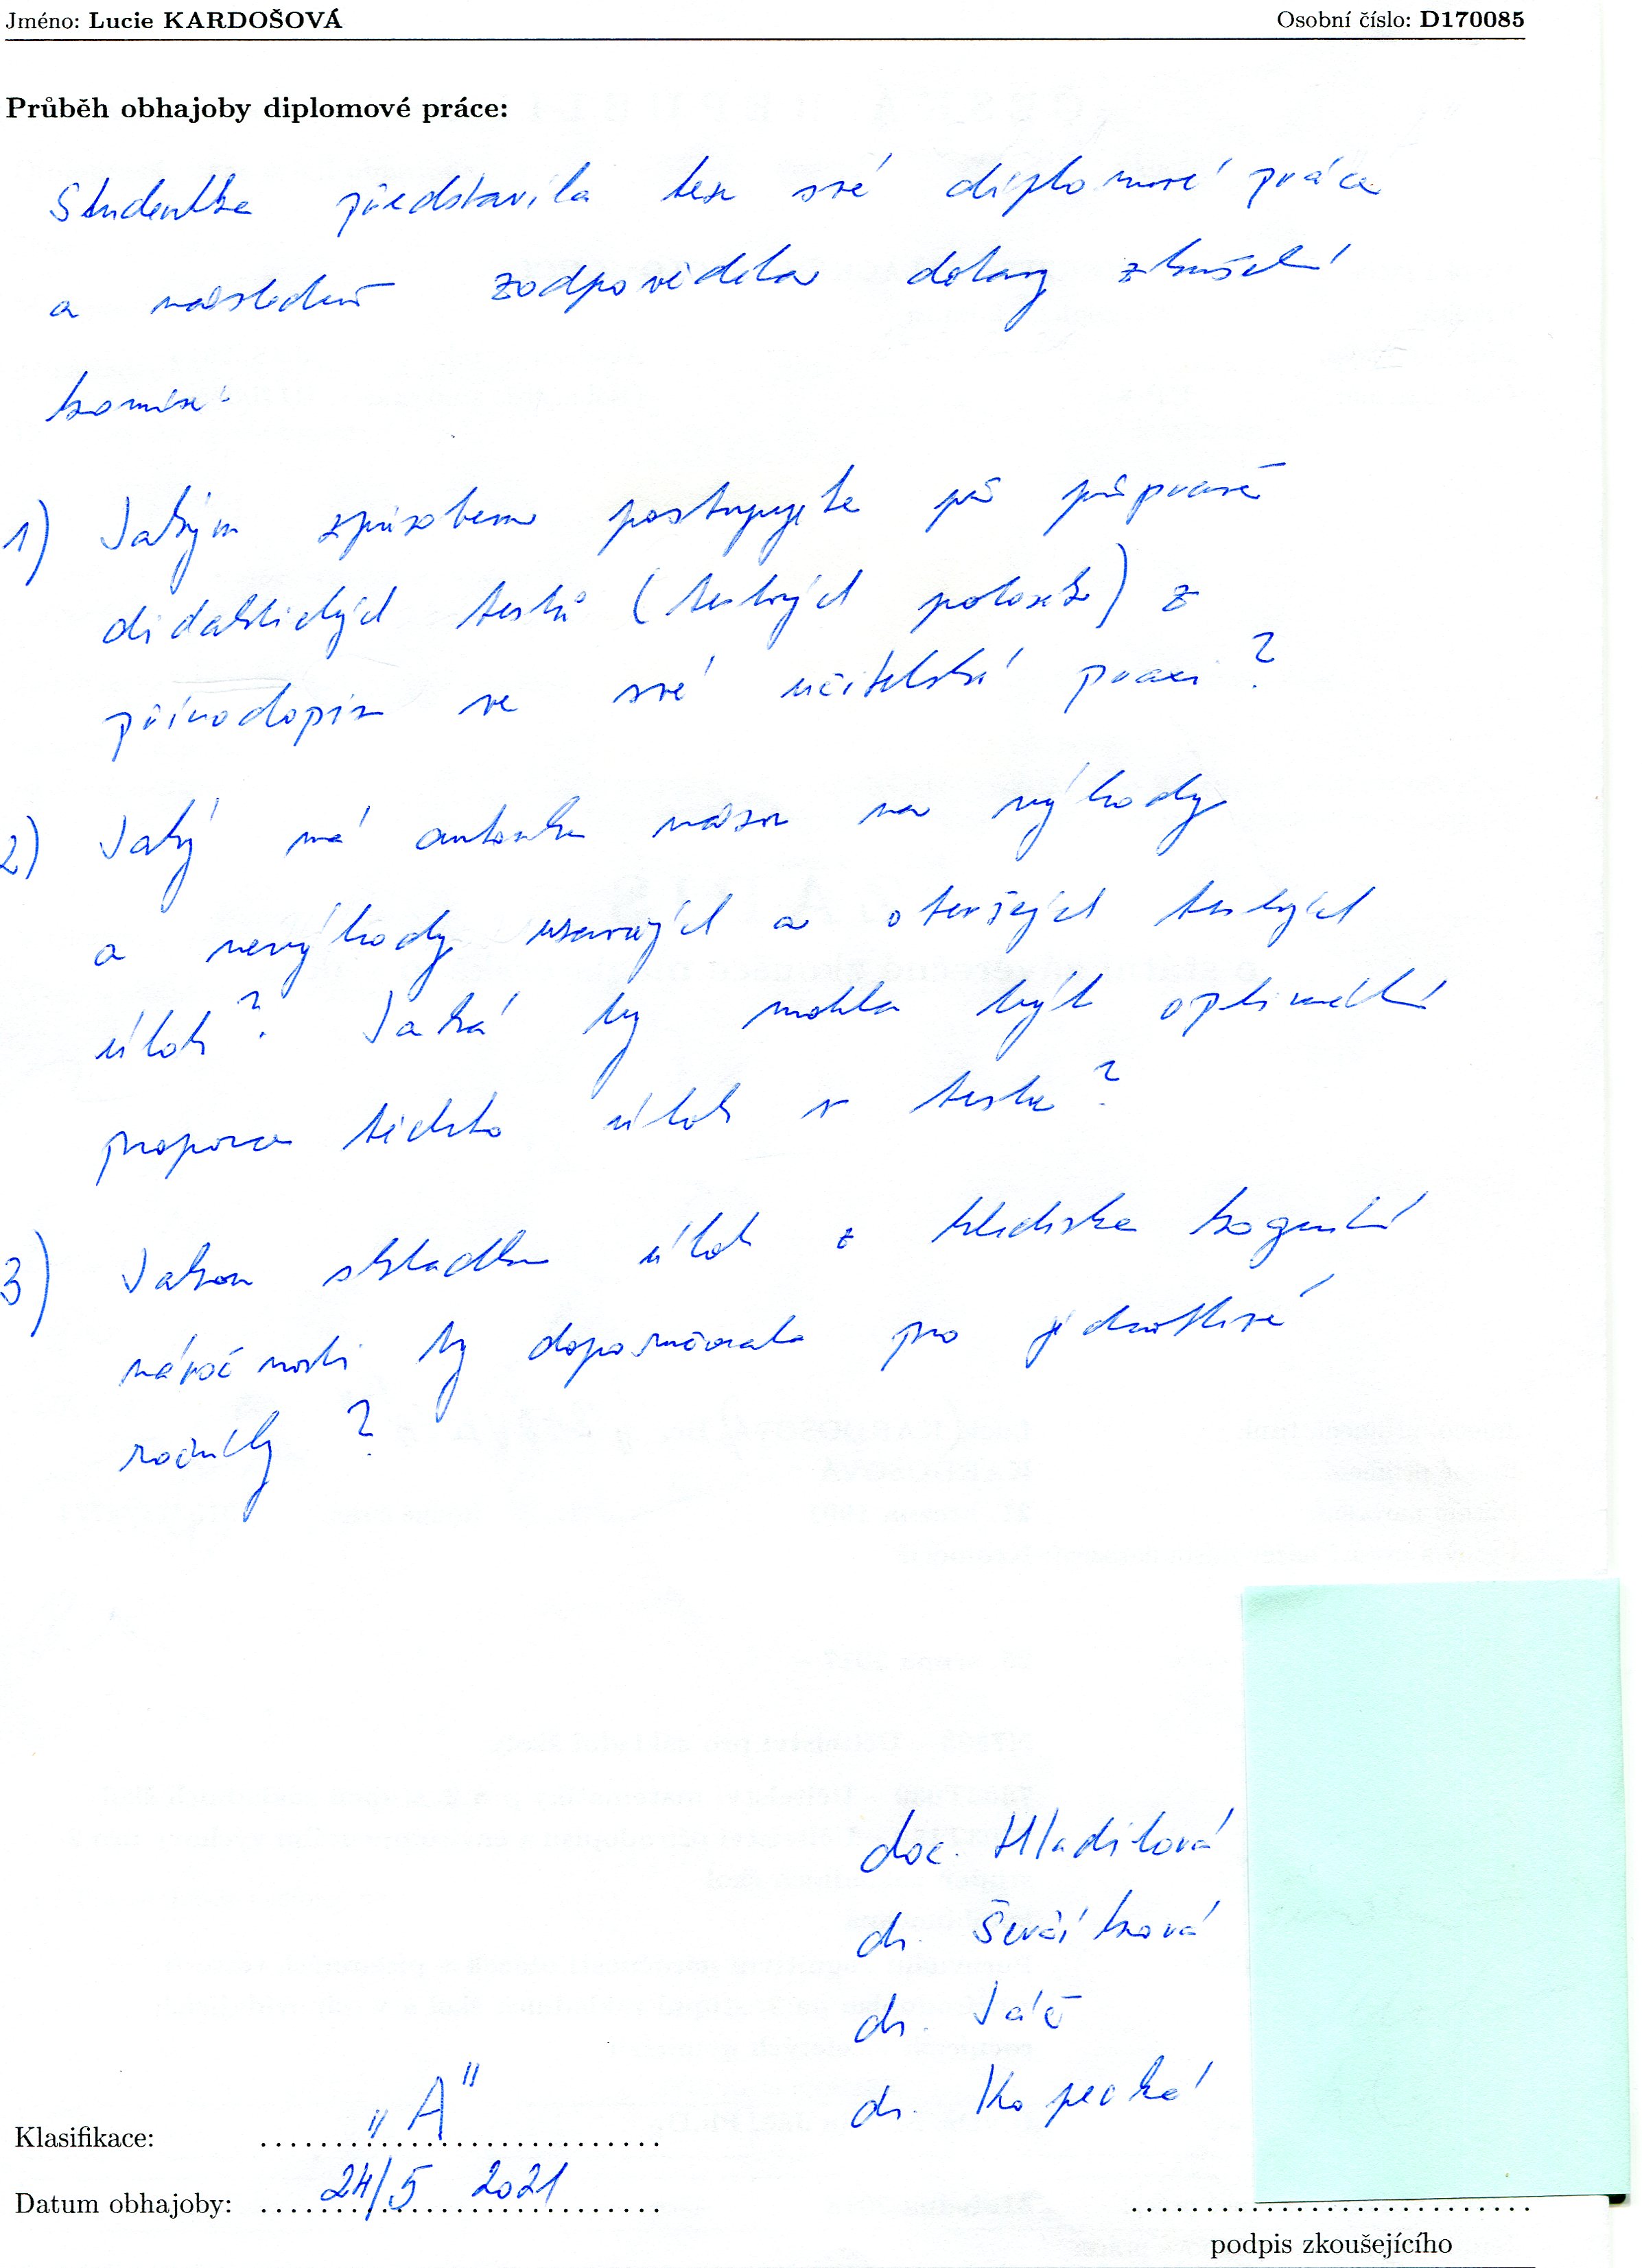 Jméno: Lucie KARDOŠOVÁ Osobní číslo: D170085
Průběh obhajoby diplomové práce:
Studentka představila teze své diplomové práce
a následně zodpověděla dotazy zkušební
komise:
1) Jakým způsobem postupujete při přípravě
didaktických testů (testových položek) z
přírodopisu ve své učitelské praxi?
2) Jaký má autorka názor na výhody
a nevýhody uzavřených a otevřených testových
úloh? Jaká by mohla být optimální
proporce těchto úloh v testu?
3) Jakou skladbu úloh z hlediska kognitivní
náročnosti by doporučovala pro jednotlivé
ročníky?
doc. Hladilová
dr. Ševčíková
dr. Jáč
dr. Kopecká
Klasifikace: „A"
Datum obhajoby: 24/5 2021
podpis zkoušejícího